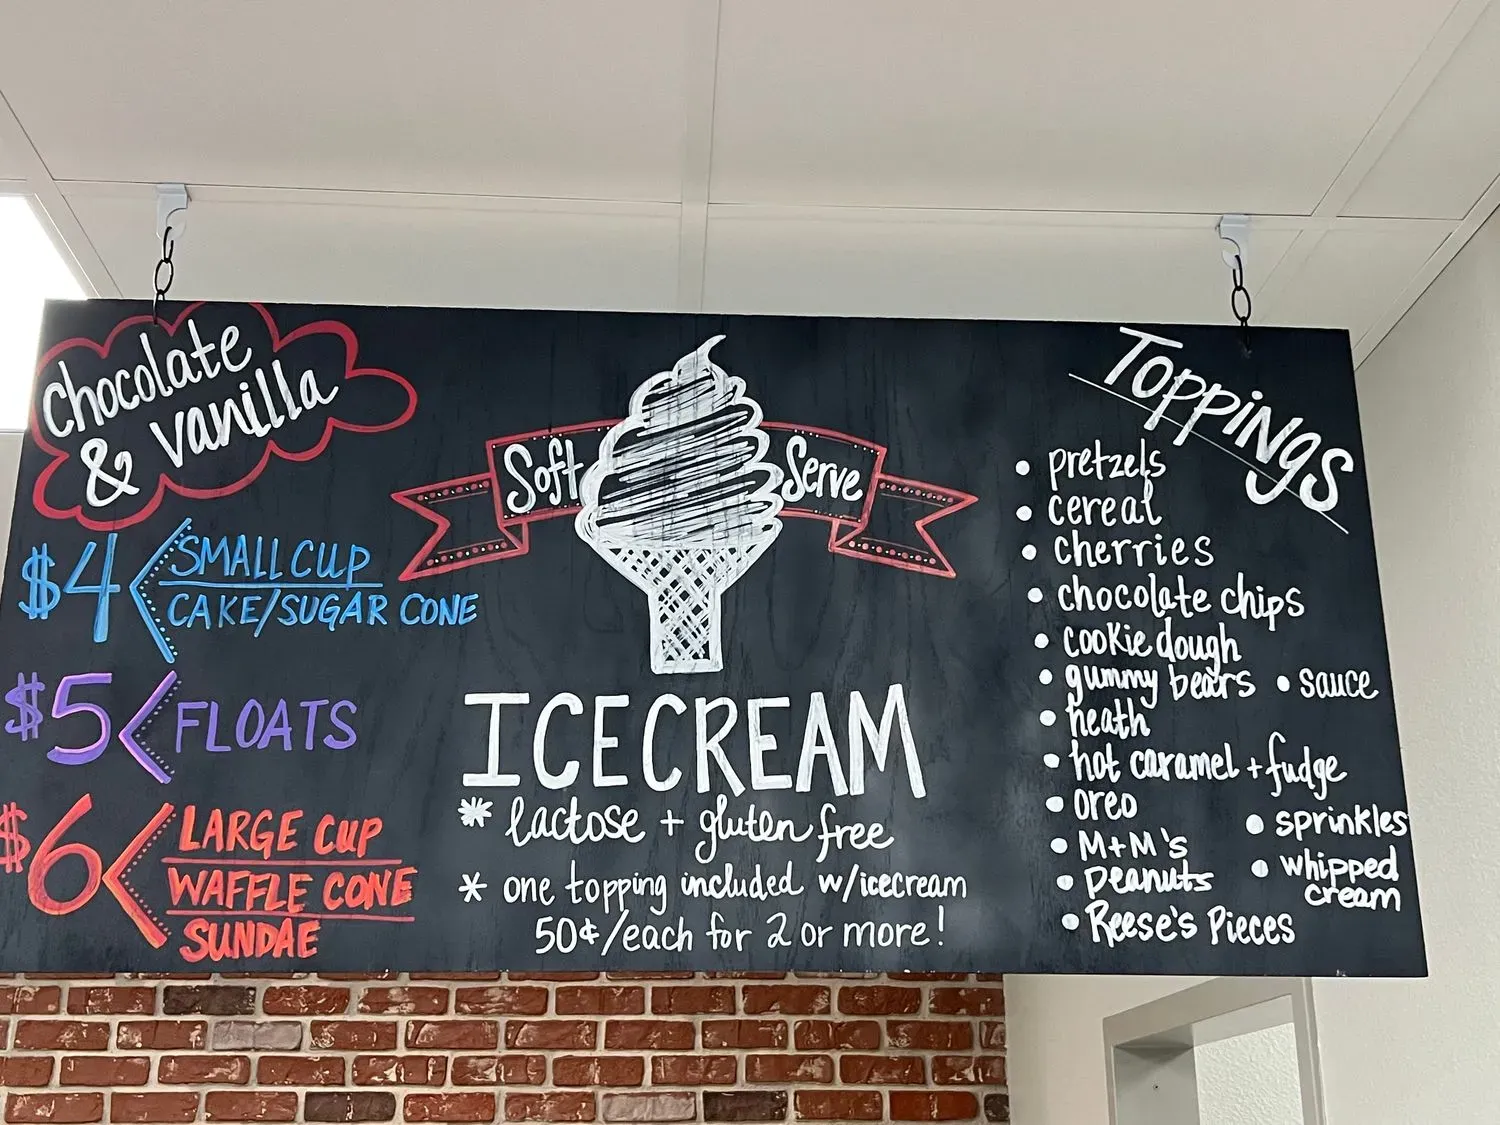 chocolate
& vanilla
$4
SMALL CUP
CAKE/SUGAR CONE
$5
FLOATS
$6
LARGE CUP
WAFFLE CONE
SUNDAE
Soft Serve
ICE CREAM
* lactose + gluten free
* one topping included w/icecream
50¢/each for 2 or more!
TOPPiNGS
• pretzels
• cereal
• cherries
• chocolate chips
• cookie dough
• gummy bears • sauce
• heath
• hot caramel + fudge
• oreo
• sprinkles
• M+M's
• peanuts
• whipped
cream
• Reese's Pieces